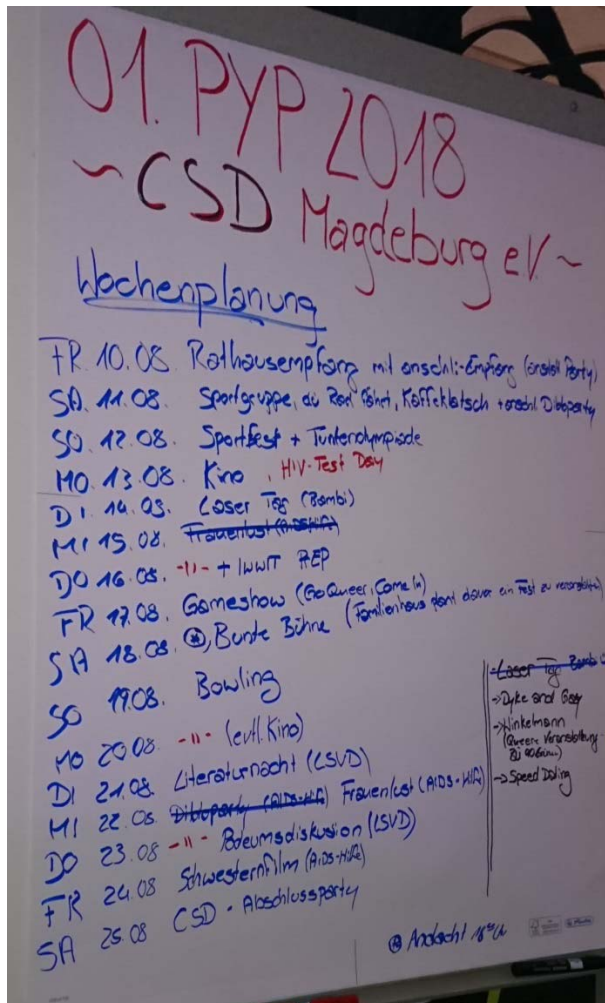 01. PYP 2018
~ CSD Magdeburg e.V. ~
Wochenplanung
FR 10.08. Rathausempfang mit anschl. Empfang (Party)
SA. 11.08. Sportgruppe, Kaffeklatsch + anschl. Dildoparty
SO 12.08. Sportfest + Tuntenolympiade
MO 13.08. Kino, HIV-Test Day
DI 14.08. Laser Tag (Bambi)
MI 15.08. Frauenlust (AIDS-Hilfe)
DO 16.08. -"- + IWWIT PrEP
FR 17.08. Gameshow (GoQueer, Come In)
SA 18.08. Bunte Bühne (Familienhaus plant davor ein Fest zu veranstalten)
SO 19.08. Bowling
MO 20.08. -"- (evtl. Kino)
DI 21.08. Literaturnacht (LSVD)
MI 22.08. Dildoparty (AIDS-Hilfe) Frauenlust (AIDS-Hilfe)
DO 23.08 -"- Podeumsdiskusion (LSVD)
FR 24.08 Schwesternfilm (AIDS-Hilfe)
SA 25.08 CSD - Abschlussparty
-Laser Tag Bambi
->Dyke and Gay
->Winkelmann
(Queere Veranstaltung
->Speed Dating
Andacht 18°° Uhr